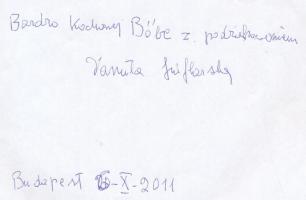 Bardzo Kochanej Böbe z podziękowaniem
Danuta Szaflarska
Budapest 16-X-2011